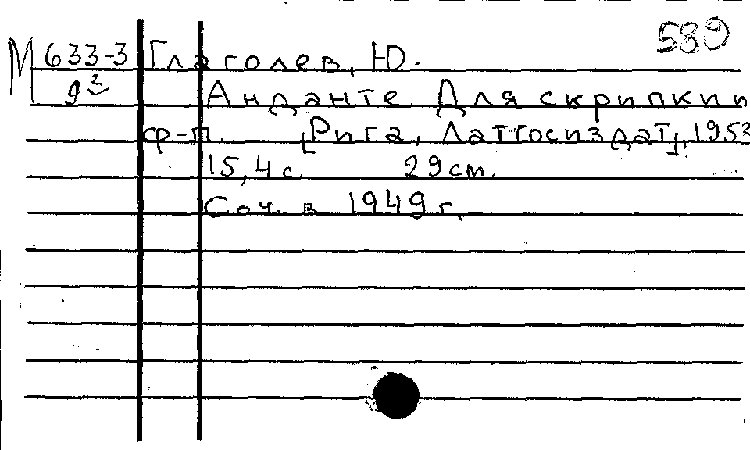 589
М 633-3 Глаголев, Ю.
93 Анданте Для скрипки и
ф-п. [Рига, Латгосиздат], 1953
15, 4 с. 29 см.
Соч. в 1949 г.